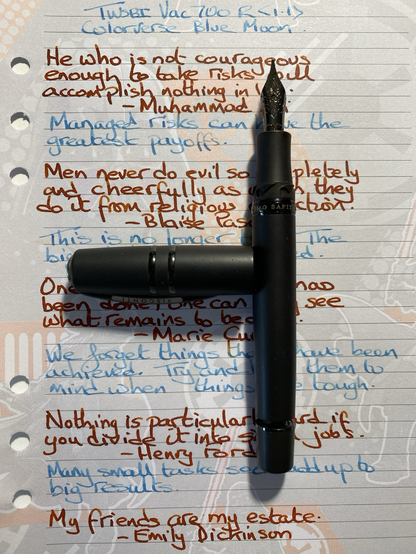 TWSBI Vac 700 R <1.1>
Colorverse Blue Moon.
He who is not courageous
enough to take risks will
accomplish nothing in
- Muhammad
Managed risks can the
greatest payoffs.
Men never do evil so completely
and cheerfully as when they
do it from religious conviction
- Blaise
This is no longer The
One
been done; one can see
what remains to be
- Marie
We forget things have been
achieved. Try and them to
mind when things tough.
Nothing is particularly hard if
you divide it into jobs.
- Henry Ford
Many small tasks add up to
big results.
My friends are my estate.
- Emily Dickinson
HOMO SAPIENS